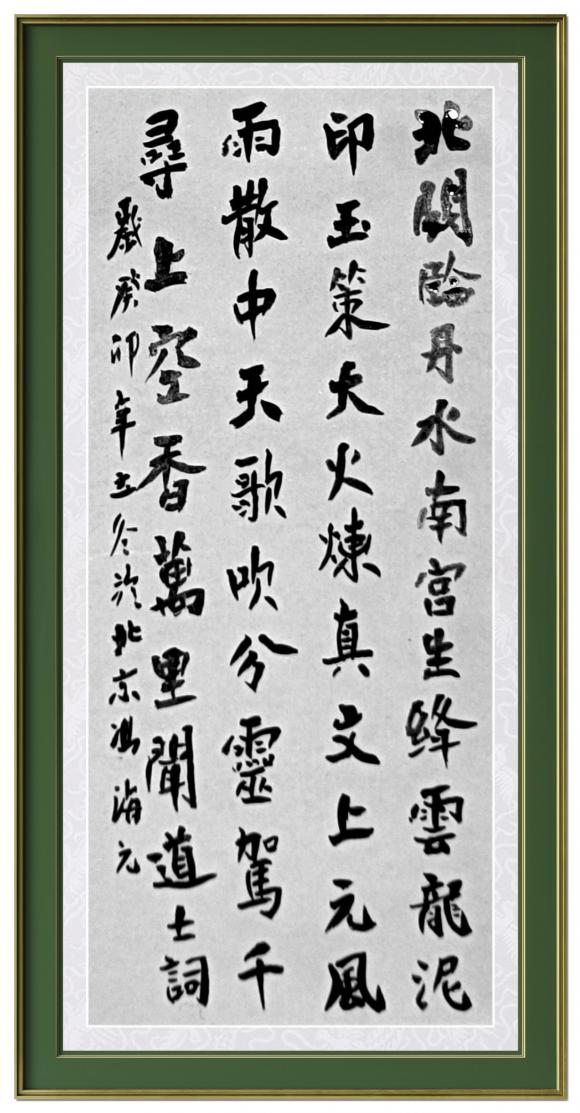 北閣臨丹水南宮生絳雲龍泥
印玉策大火煉真文上元風
雨散中天歌吹分靈駕千
尋上空香萬里聞道士詞
歲癸卯年立冬於北京馮海元